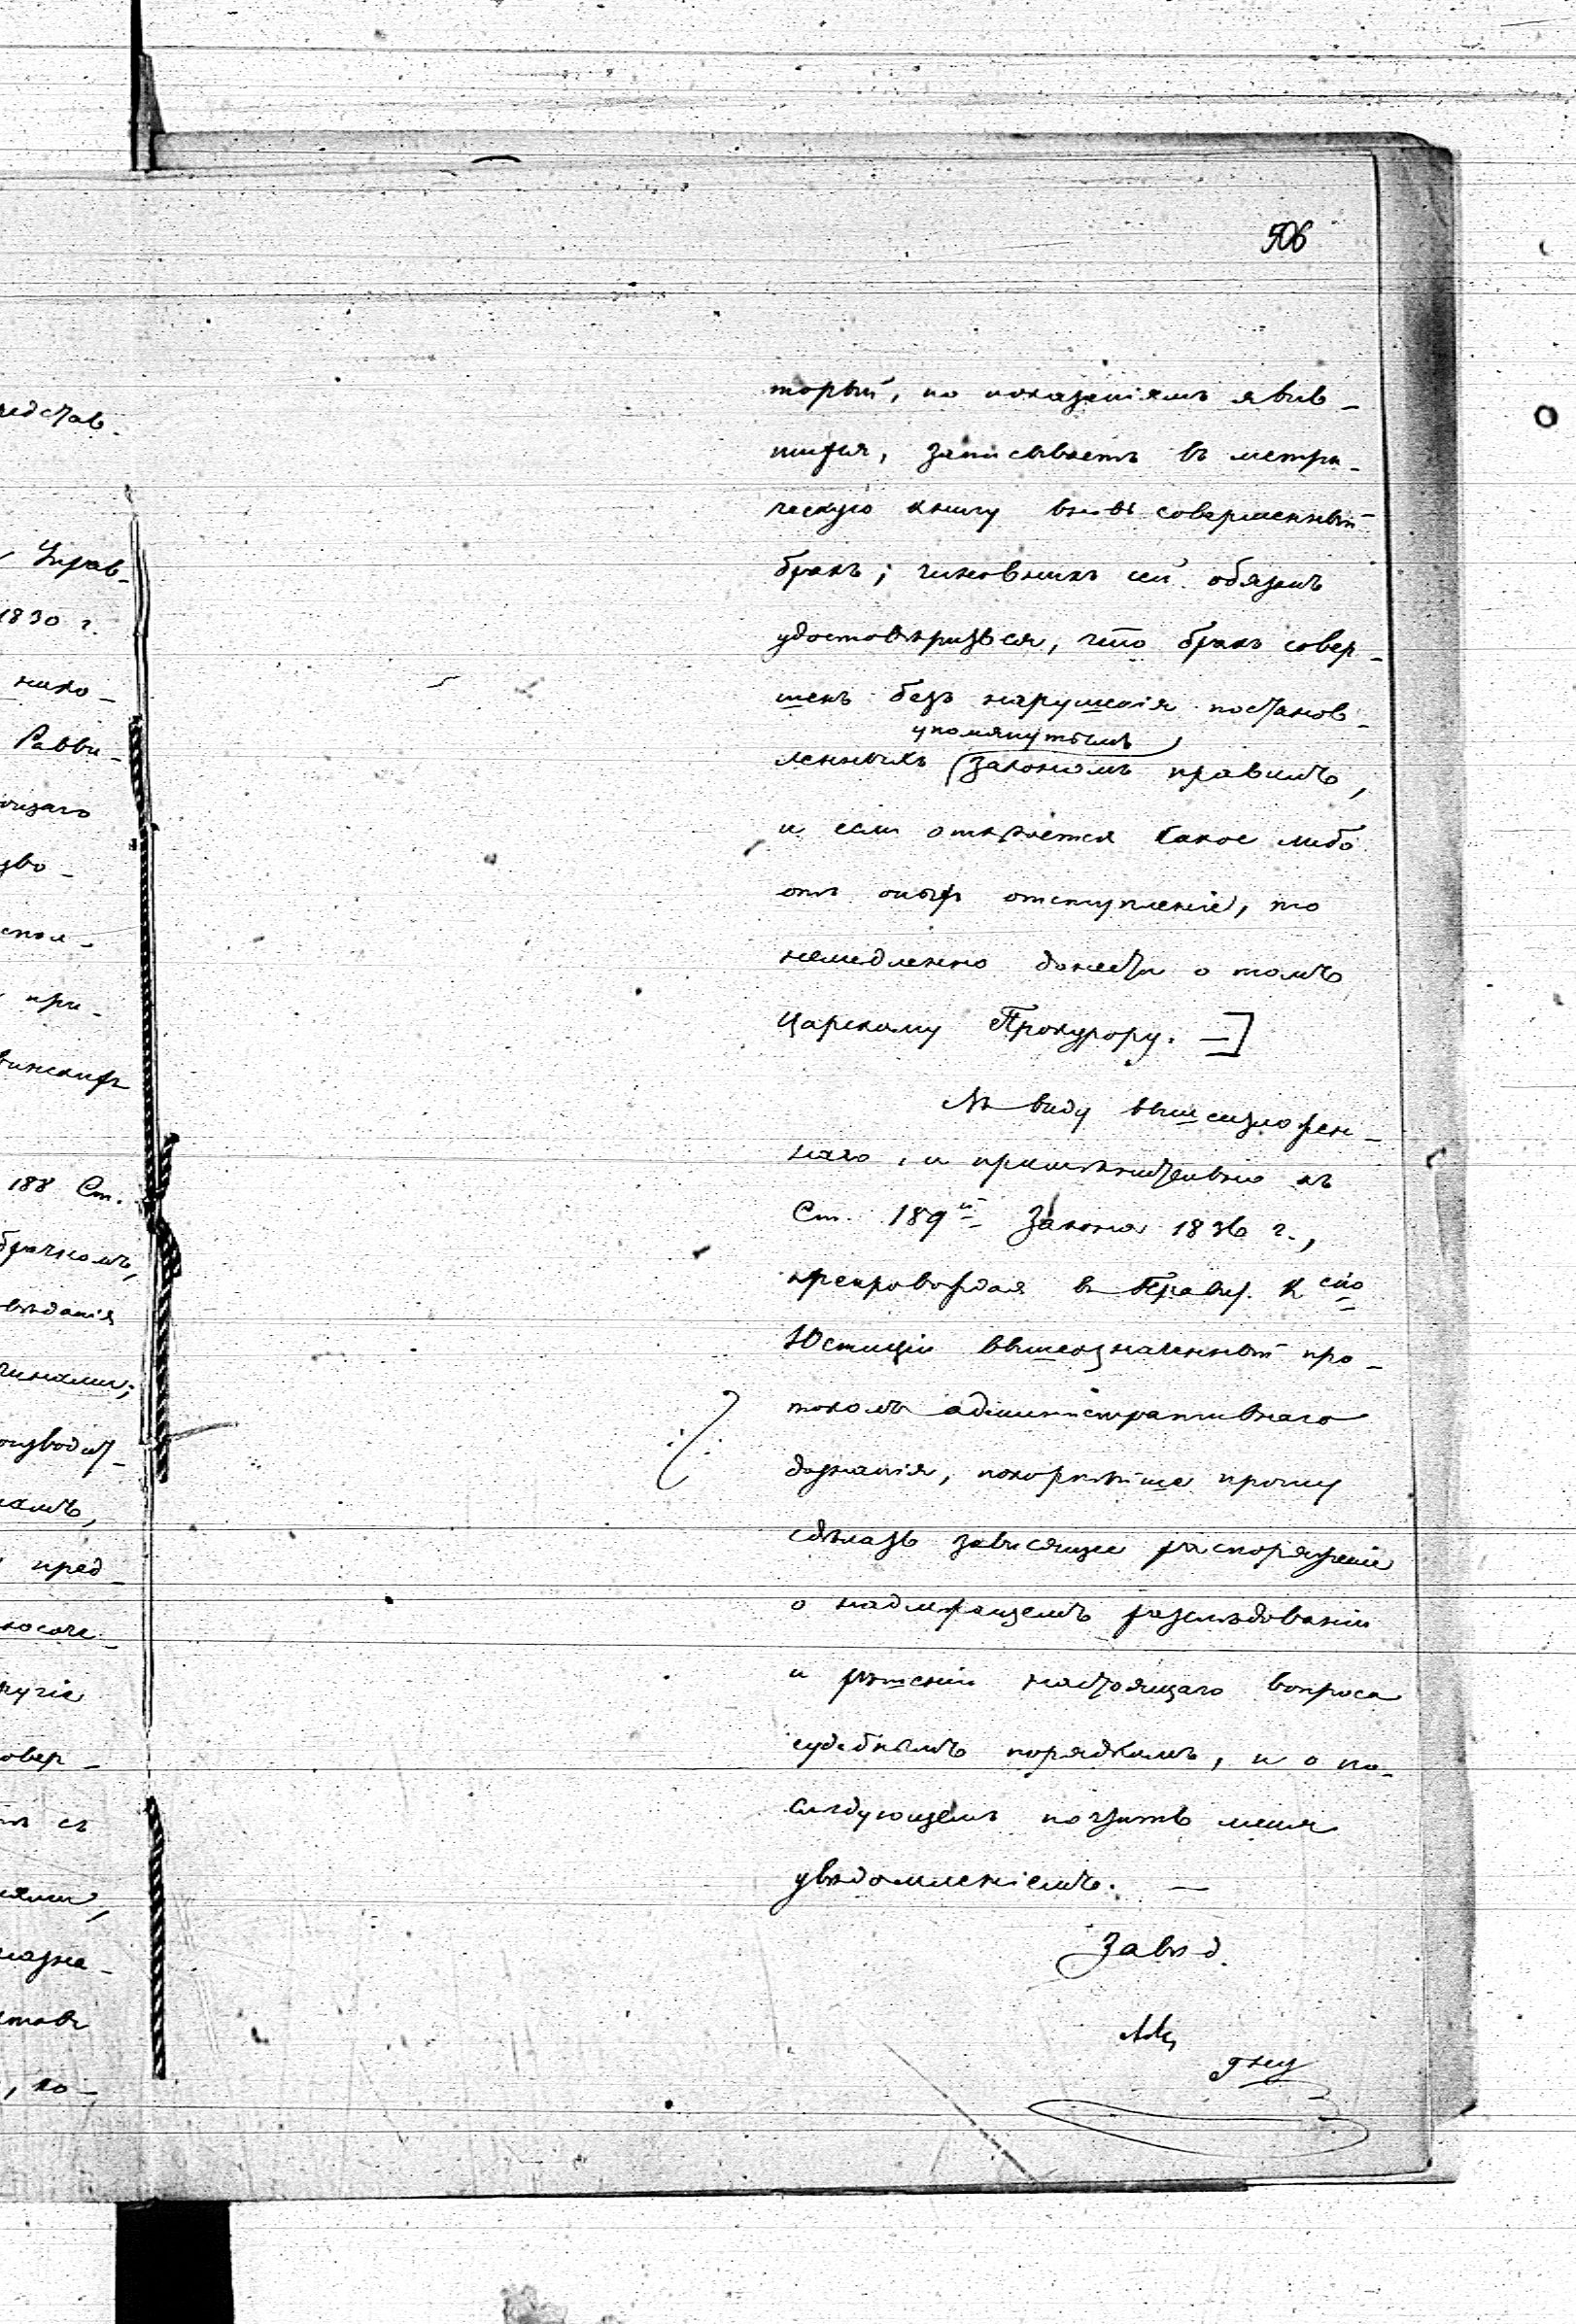 506
торый, по показаніямъ явив-
шихся, записываетъ въ метри-
ческую книгу вновь совершенный
бракъ; чиновникъ сей обязанъ
удостовѣриться, что бракъ совер-
шенъ безъ нарушенія постанов-
упомянутымъ
ленныхъ закономъ правилъ,
и если откроется какое либо
отъ оныхъ отступленіе, то
немедленно донести о томъ
Царскому Прокурору. —]
Въ виду вышеизложен-
наго, и примѣнительно къ
Ст. 189й Закона 1836 г.,
препровождая въ Правит. Кcію
Юстиціи вышеозначенный про-
токолъ административнаго
дознанія, покорнѣйше прошу
сдѣлать зависящее распоряженіе
о надлежащемъ разслѣдованіи
и рѣшеніи настоящаго вопроса
судебнымъ порядкомъ, и о по-
слѣдующемъ почтить меня
увѣдомленіемъ. —
Завѣд.
редстав.
Управ-
1830 г.
нико-
Равви-
ющаго
зво-
спол-
при-
винскихъ
188 Ст.
брачномъ,
вѣданія
чинами;
оизводит-
пред-
овер-
тъ съ
, ко-